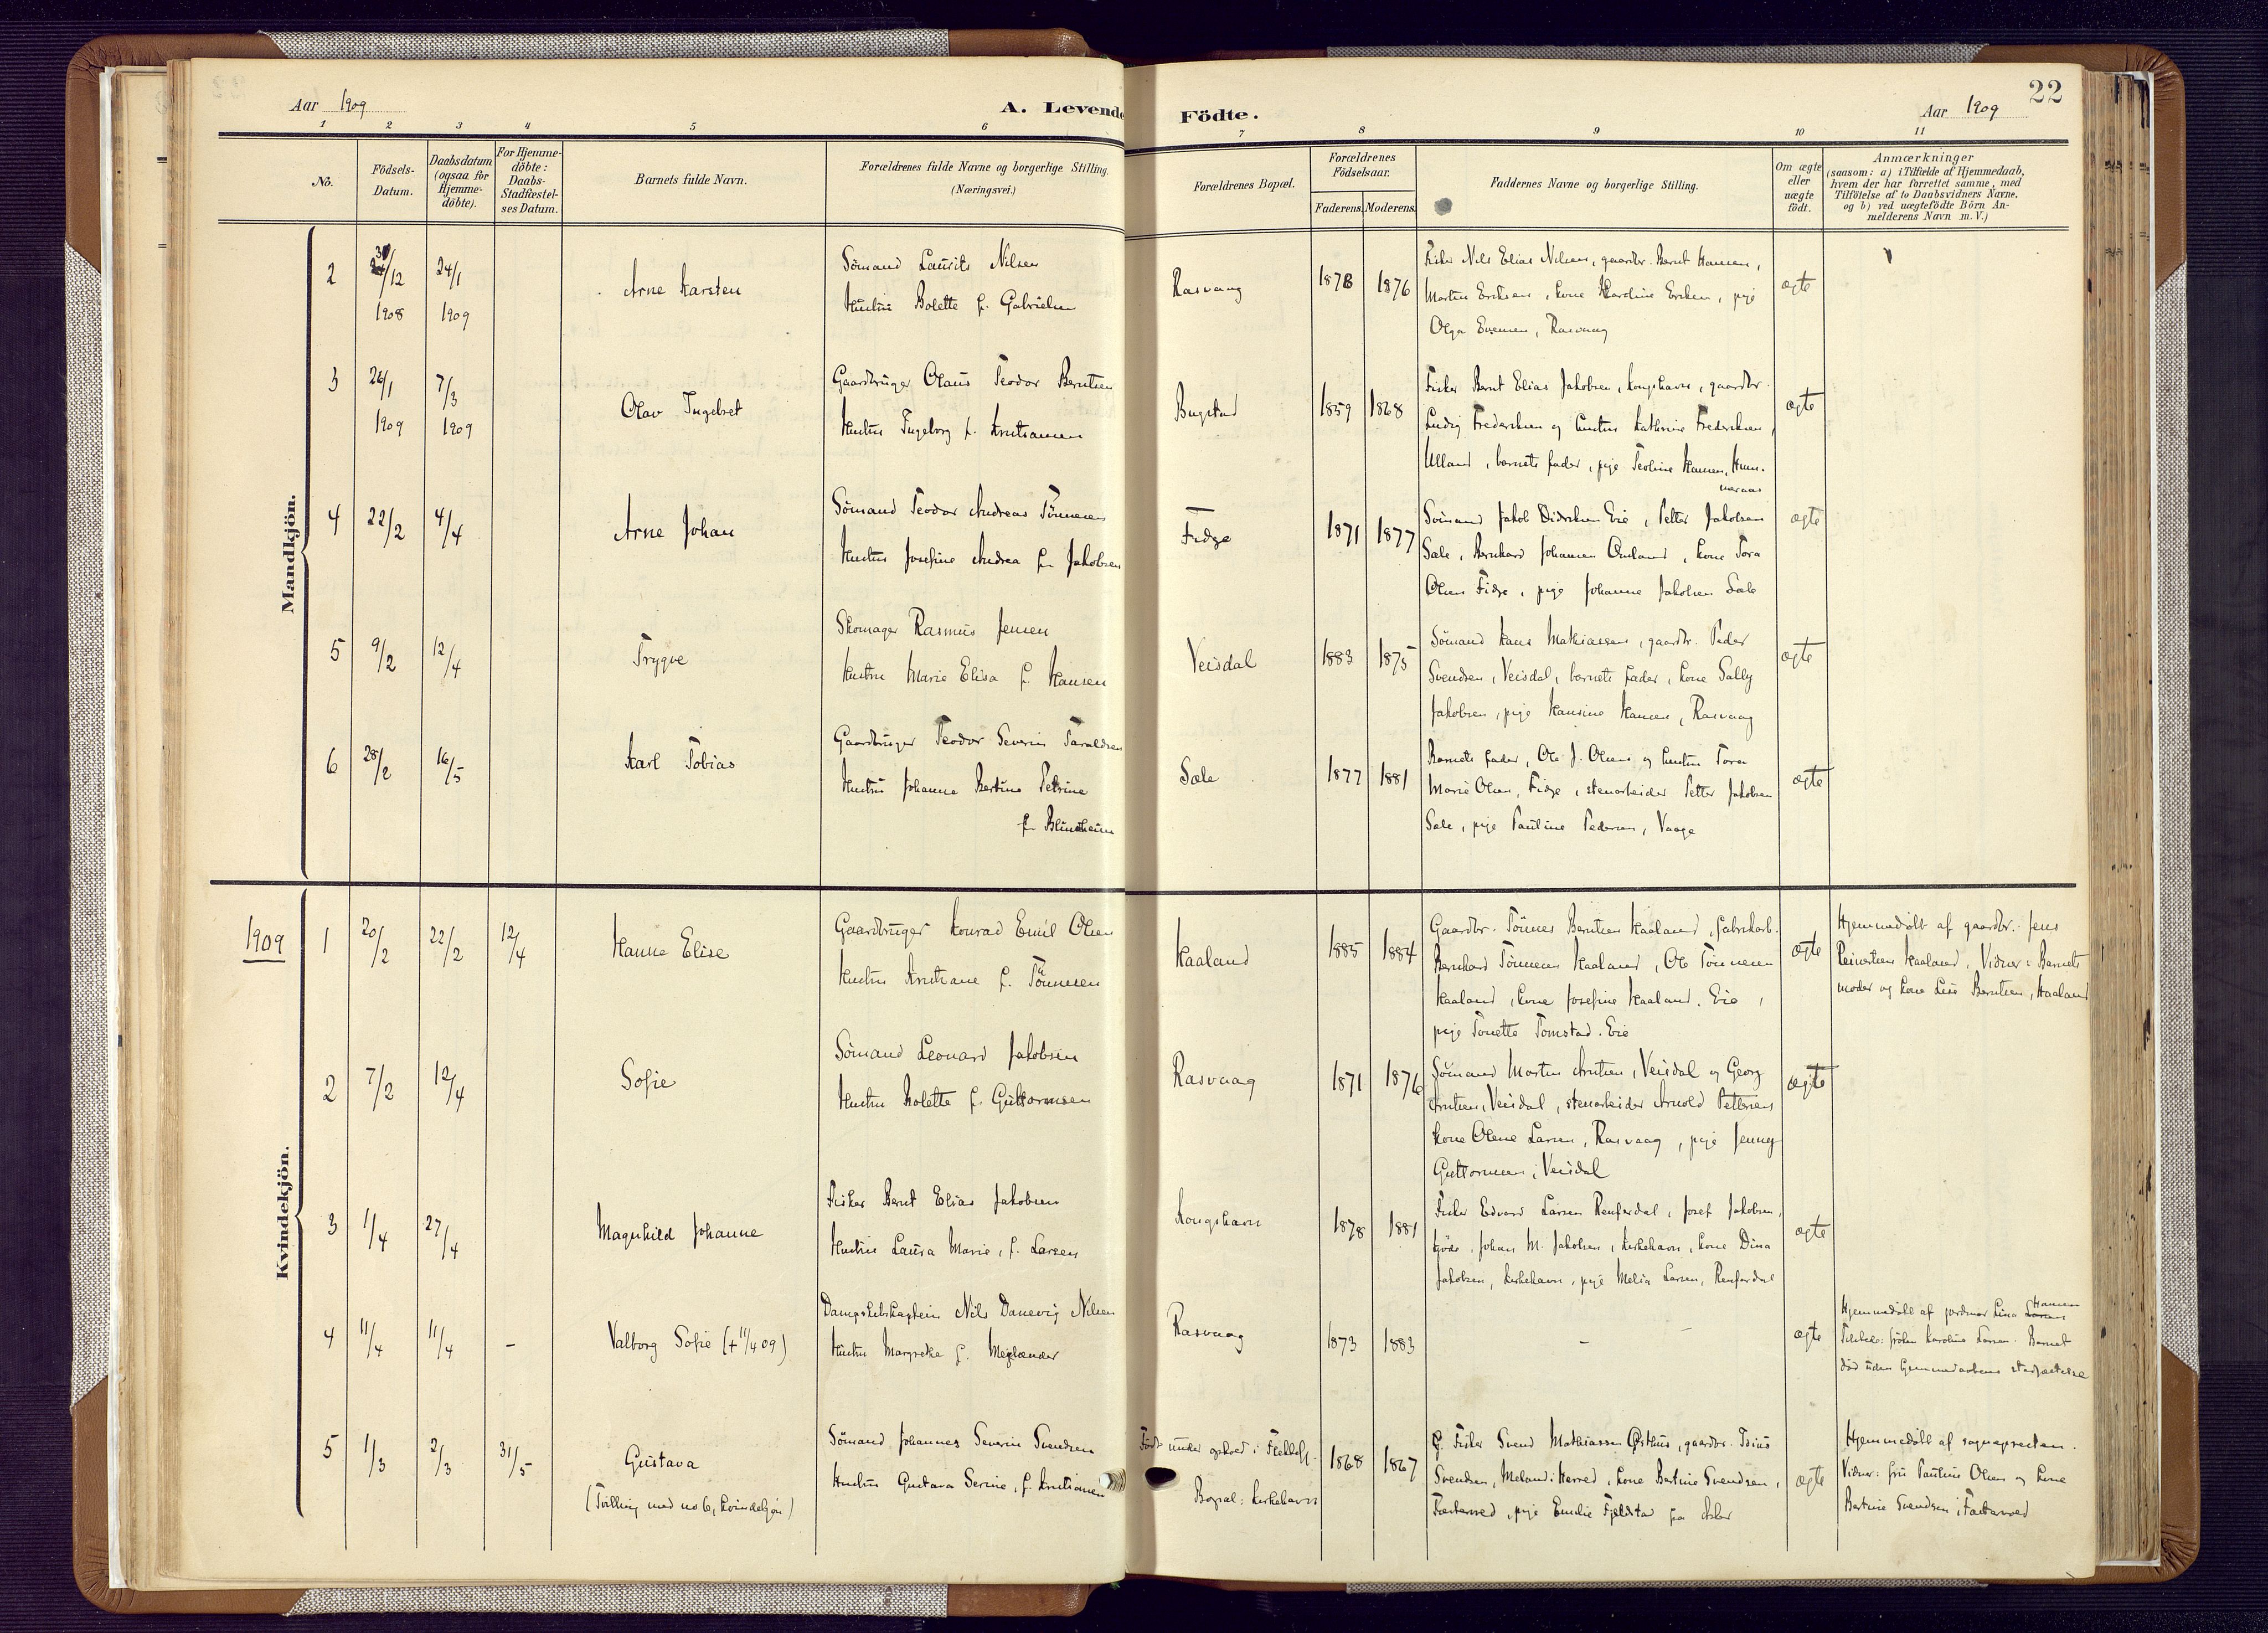 22
Aar 1909
A. Levende Födte.
Aar 1909
1 2 3 4 5 6 7 8 9 10 11
No.
Födsels-Datum.
Daabsdatum (ogsaa for Hjemme-döbte).
For Hjemme-döbte: Daabs-Stadfæstel-ses Datum.
Barnets fulde Navn.
Forældrenes fulde Navne og borgerlige Stilling.
(Næringsvei.)
Forældrenes Bopæl.
Forældrenes Födselsaar.
Faderens. Moderens.
Faddernes Navne og borgerlige Stilling.
Om ægte eller uægte födt.
Anmærkninger
(saasom: a) i Tilfælde af Hjemmedaab,
hvem der har forrettet samme, med
Tilföielse af to Daabsvidners Navne,
og b) ved uægtefödte Börn An-
melderens Navn m. V.)
Mandkjön.
2 /12 1908 24/1 1909 Arne Karsten
Sömand Laurits Nilsen
Hustru Bolette f. Gabrielsen
Rasvaag 1878 1876
Fisker Nils Elias Nilsen, gaardbr. Bernt Hansen,
Martin Eriksen, kone Eriksen, pige
Olga Evensen, Rasvaag
ægte
3 26/1 1909 7/3 1909 Olav Ingebret
Gaardbruger Olaus Teodor Berntsen
Hustru Ingeborg f. Kristiansen
Bugstad 1859 1868
Fisker Bernt Elias Jakobsen, kongshavn, gaardbr.
Ludvig Frederiksen og hustru Kathrine Frederiksen,
Ulland, barnets fader, pige Teoline Hansen,
ægte
4 22/2 4/4 Arne Johan
Sömand Teodor Andreas Tönnesen
Hustru Josefine Andrea f. Jakobsen
Fidge 1871 1877
Sömand Jakob Didriksen Eie, Petter Jakobsen
Sæle, Bernhard Johansen Omland, kone Tora
Olsen Fidge, pige Johanne Jakobsen Sæle
ægte
5 9/2 12/4 Trygve
Skomager Rasmus Jensen
Hustru Marie Elisa f. Hansen
Veisdal 1883 1875
Sömand Hans Mathiassen, gaardbr. Peder
Svendsen, Veisdal, barnets fader, kone Sally
Jakobsen, pige Hansine Hansen, Rasvaag
ægte
6 28/2 16/5 Karl Tobias
Gaardbruger Teodor Severin Taraldsen
Hustru Johanne Bertine Petrine
f. Blindheim
Sæle 1877 1881
Barnets fader, Ole J. Olsen og hustru Tora
Marie Olsen, Fidge, stenarbeider Petter Jakobsen
Sæle, pige Pauline Pedersen, Vaage
ægte
1909
Kvindekjön.
1 20/2 22/2 12/4 Hanne Elise
Gaardbruger Konrad Emil Olsen
Hustru Kristiane f. Tönnesen
Haaland 1885 1884
Gaardbr. Tönnes Berntsen Haaland, fabrikarb.
Bernhard Tönnesen Haaland, Ole Tönnesen
Haaland, kone Josefine Haaland. Eie,
pige Tonette Tomstad. Eie
ægte
Hjemmedöbt af gaardbr. Jens
Reinertsen Haaland. Vidner: Barnets
moder og kone Lise Berntsen, Haaland
2 7/2 12/4 Sofie
Sömand Leonard Jakobsen
Hustru Bolette f. Guttormsen
Rasvaag 1871 1876
Sömand Martin Arntsen, Veisdal og Georg
Arntsen, Veisdal, stenarbeider Arnold Pettersen
kone Olene Larsen, Rasvaag, pige Jenny
Guttormsen, Veisdal
ægte
3 1/4 27/4 Magnhild Johanne
Fisker Bernt Elias Jakobsen
Hustru Laura Marie, f. Larsen
Kongshavn 1878 1881
Fisker Edvard Larsen Renferdal, Josef Jakobsen,
Johan M. Jakobsen, kirkehavn, kone Dina
Jakobsen, kirkehavn, pige Melia Larsen, Renferdal
ægte
4 11/4 11/4 - Valborg Sofie (+ 11/4 09)
Dampskibskaptein Nils Danevig Nilsen
Hustru Margrethe f. Meglænder
Rasvaag 1873 1883
- -
ægte
Hjemmedöbt af jordmor Lina Hansen
fröken Karoline Larsen. Barnet
död uden hjemmedaabens stadfæstelse
5 1/3 2/3 31/5 Gustava
(Tvilling med no 6, kvindekjön)
Sömand Johannes Severin Svendsen
Hustru Gustava Serine, f. Kristiansen
Födt under ophold i Flekkefj.
Bopæl: kirkehavn
1868 1867
Fisker Svend Mathiassen Östhus, gaardbr. Tonius
Svendsen, Meland i Herred, kone Bertine Svendsen,
pige Emilie Fjeldstad fra
ægte
Hjemmedöbt af sognepresten.
Vidner: fru Pauline Olsen og kone
Bertine Svendsen i